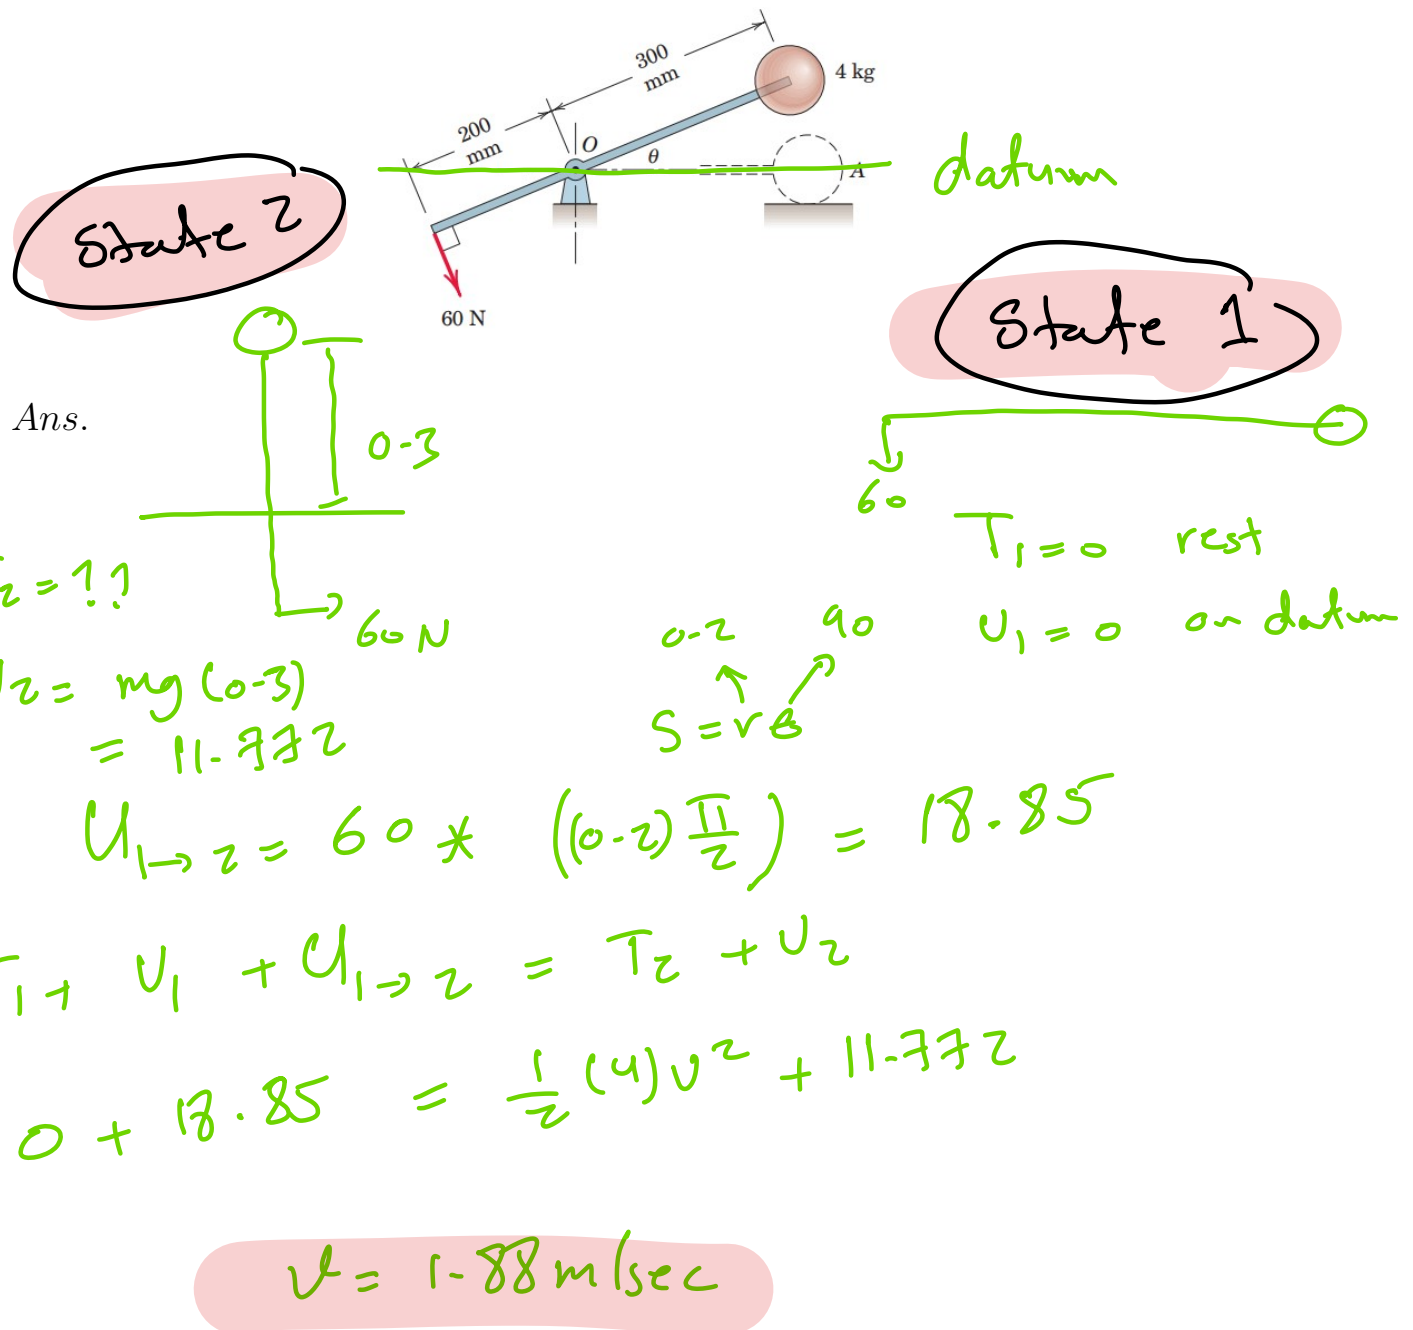 300
mm
4 kg
200
mm
O
θ
A
datum
60 N
State 2
State 1
Ans.
0-3
60
T1 = 0 rest
2 = ??
60 N
0-2 90
U1 = 0 on datum
2 = mg (0-3)
S = rθ
= 11-772
U1→2 = 60 * ((0-2) π/2) = 18.85
T1 + U1 + U1→2 = T2 + U2
0 + 18.85 = 1/2 (4) v² + 11-772
v = 1-88 m/sec